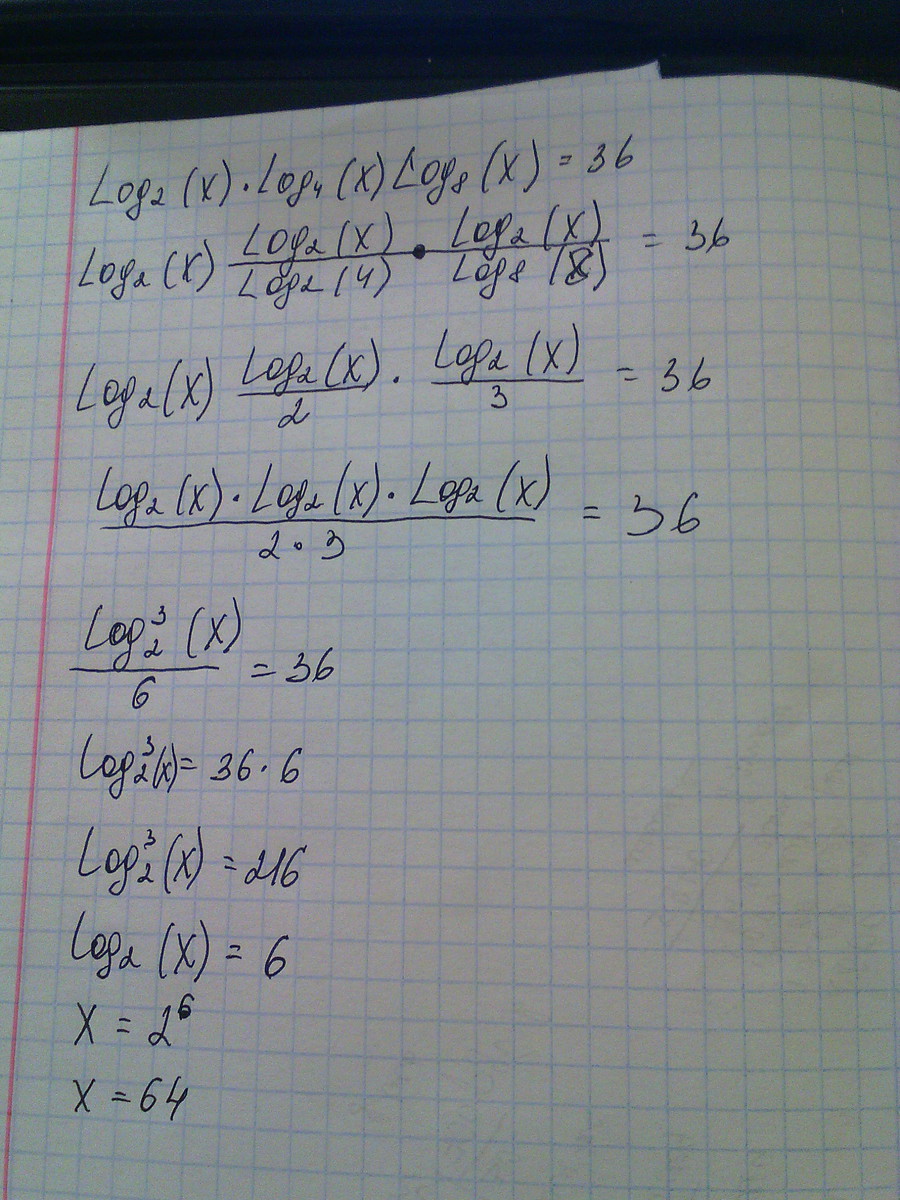 Log₂(x)·Log₄(x)Log₈(x) = 36
Log₂(x) Log₂(x)/Log₂(4) · Log₂(x)/Log₈(2) = 36
Log₂(x) Log₂(x)/2 · Log₂(x)/3 = 36
Log₂(x)·Log₂(x)·Log₂(x)/2·3 = 36
Log₂³(x)/6 = 36
Log₂³(x) = 36·6
Log₂³(x) = 216
Log₂(x) = 6
x = 2⁶
x = 64